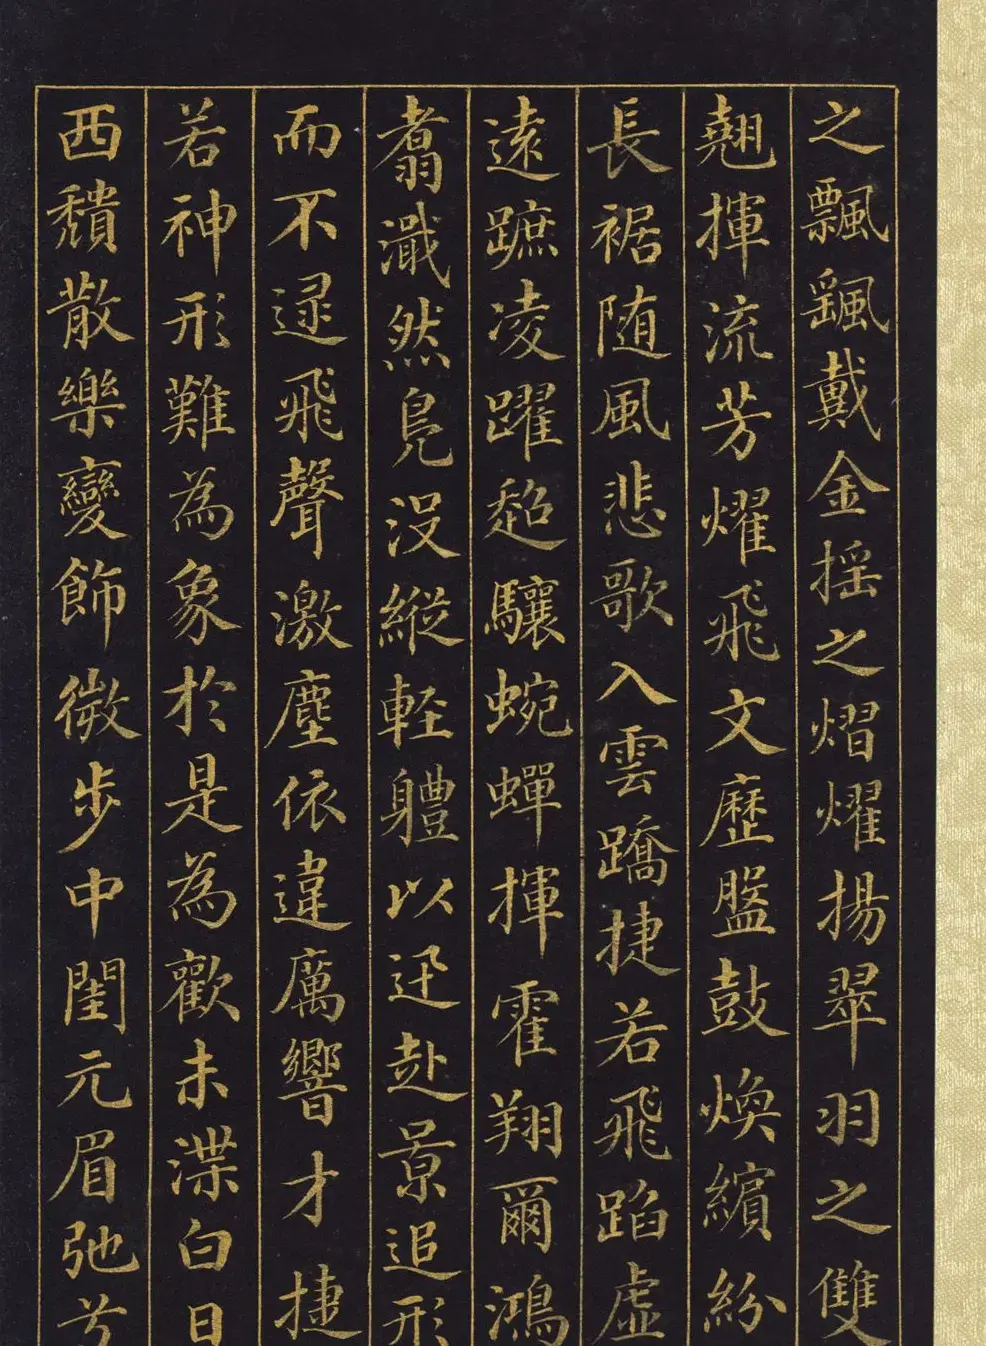 之飄飖戴金揺之熠燿揚翠羽之雙
翹揮流芳燿飛文歷盤鼓煥繽紛
長裾随風悲歌入雲蹻捷若飛蹈虛
遠蹠凌躍超驤蜿蟬揮霍翔爾鴻
翥濈然鳧没縱軽軆以迅赴景追形
而不逮飛聲激塵依違厲響才捷
若神形難為象於是為歡未渫白日
西穨散樂變飾微步中閨元眉弛